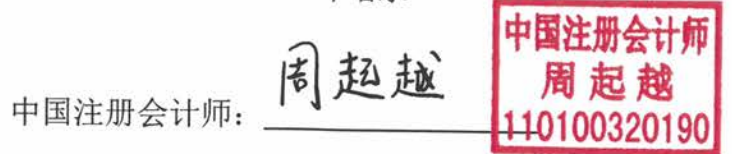 中国注册会计师：周起越
中国注册会计师
周起越
110100320190